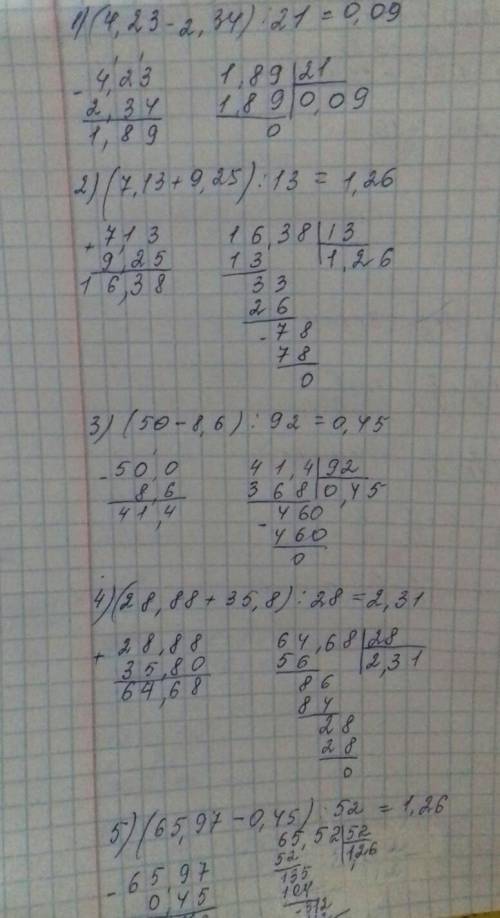 1) (4,23-2,34) : 21 = 0,09
- 4,23
2,34
1,89
1,89 | 21
1,89 | 0,09
0
2) (7,13+9,25) : 13 = 1,26
+ 7,13
9,25
16,38
16,38 | 13
13 | 1,26
33
26
- 78
78
0
3) (50-8,6) : 92 = 0,45
- 50,0
8,6
41,4
41,4 | 92
368 | 0,45
- 460
460
0
4) (28,88+35,8) : 28 = 2,31
+ 28,88
35,80
64,68
64,68 | 28
56 | 2,31
86
84
28
28
0
5) (65,97-0,45) : 52 = 1,26
- 65,97
0,45
65,52 | 52
52 | 1,26
135
104
- 312